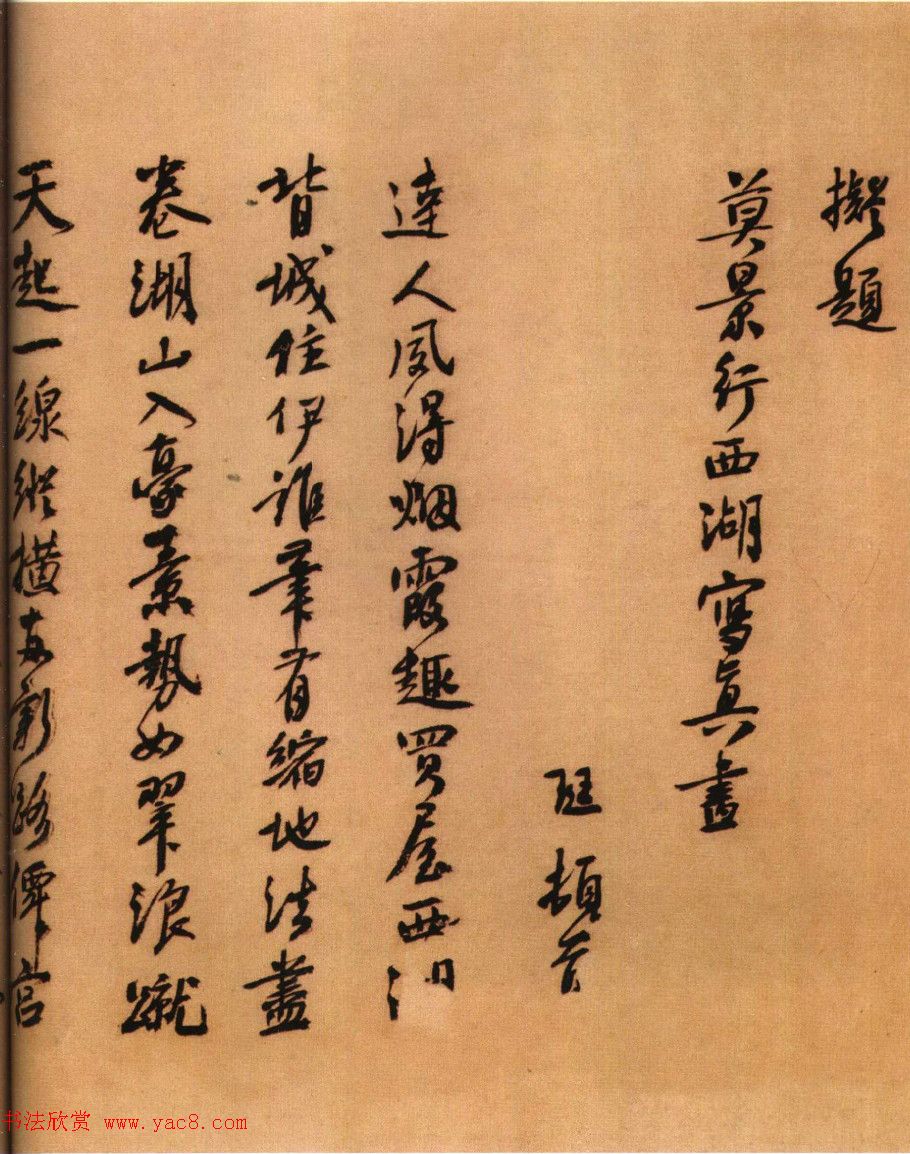 擬題
莫景行西湖寫真畫
珽頓首
達人夙得烟霞趣買屋西
背城住伊誰筆有縮地法盡
卷湖山入豪素勢如翠浪蹴
天起一線縱横路僊宫
书法欣赏 www.yac8.com